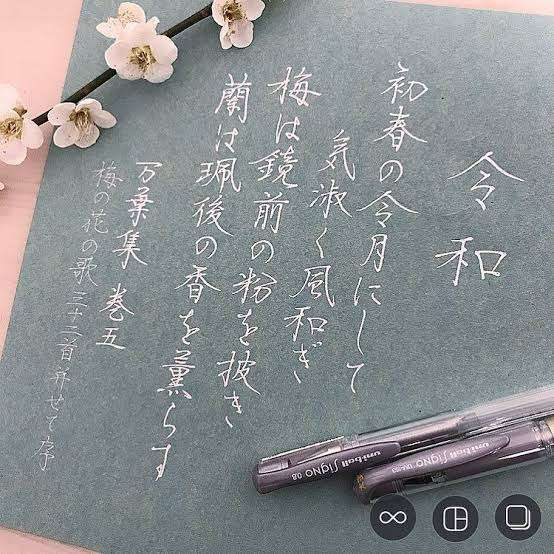 令和
初春の令月にして
気淑く風和ぎ
梅は鏡前の粉を披き
蘭は珮後の香を薫らす
万葉集 巻五
梅の花の歌三十二首并せて序
uni-ball Signo 0.8
uni-ball Signo